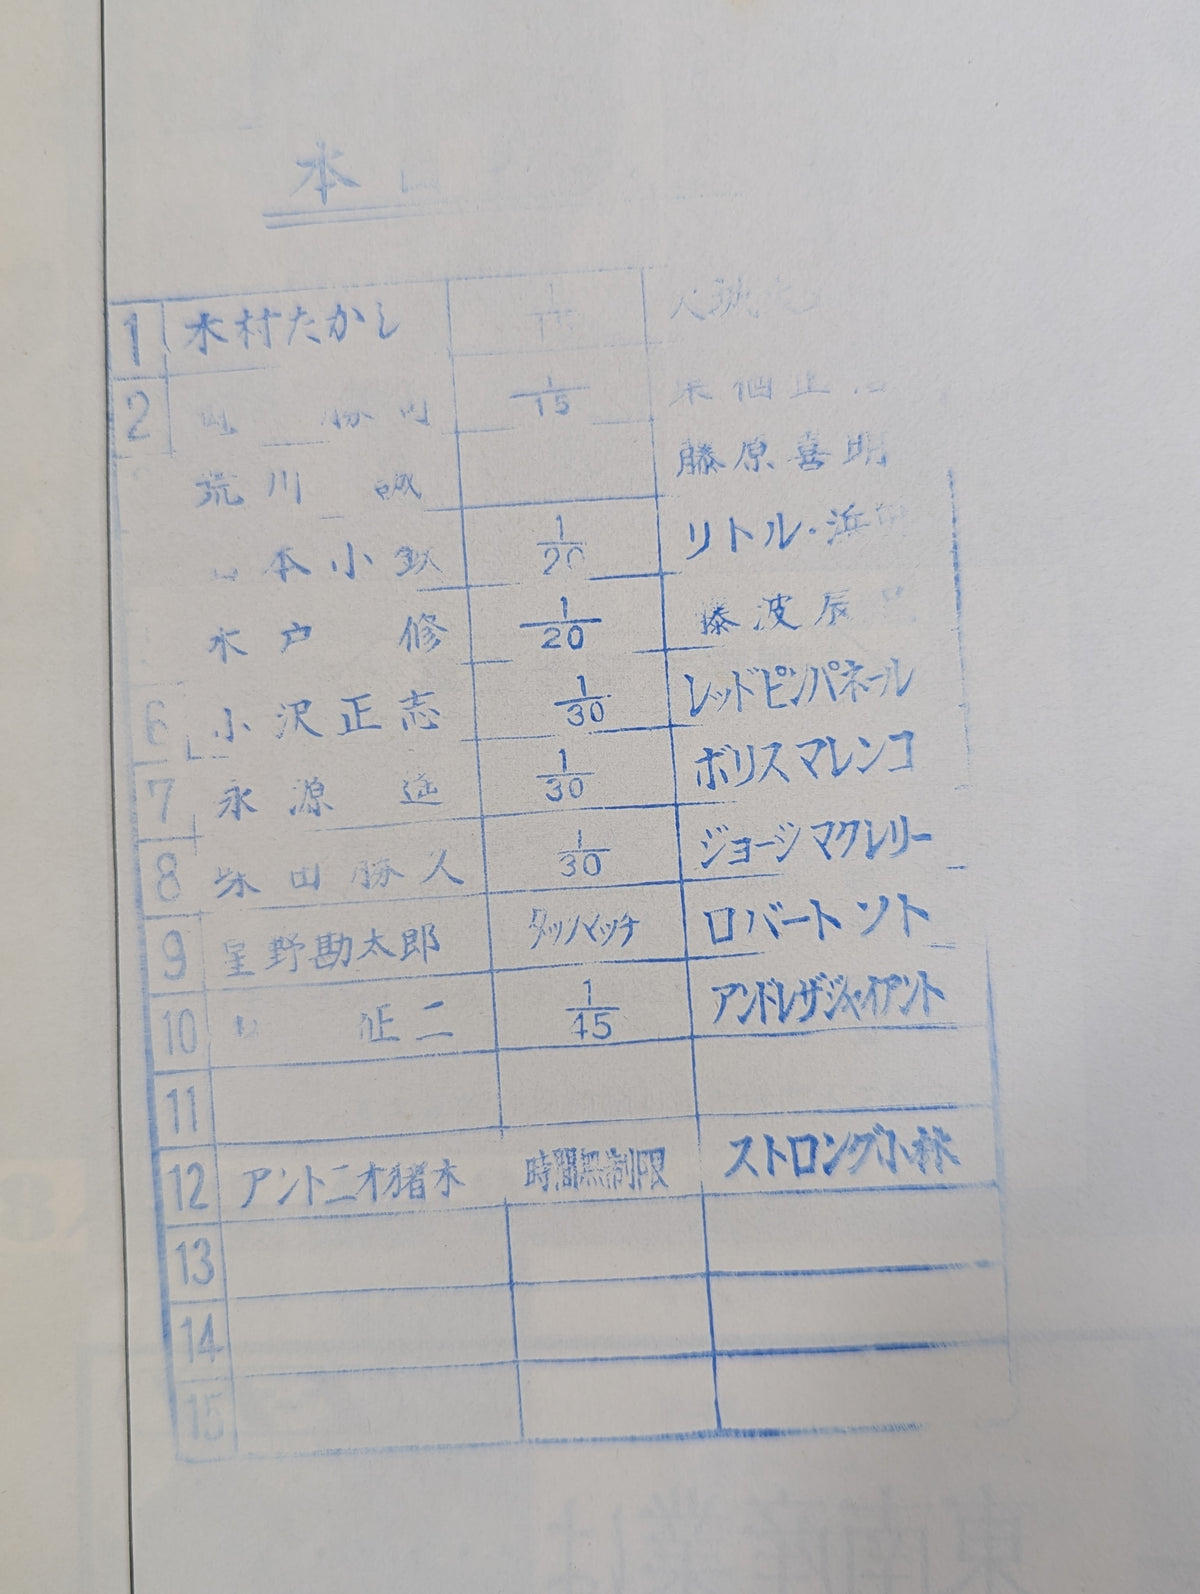 本日
1 木村たかし 1/15
2 1/15
荒川 誠 藤原喜明
本小鉄 1/20 リトル・浜
木戸 修 1/20 藤波辰
6 小沢正志 1/30 レッドピンパネール
7 永源 遥 1/30 ボリスマレンコ
8 柴田勝久 1/30 ジョージマクレリー
9 星野勘太郎 タッグマッチ ロバートソト
10 正二 1/45 アンドレザジャイアント
11
12 アントニオ猪木 時間無制限 ストロング小林
13
14
15